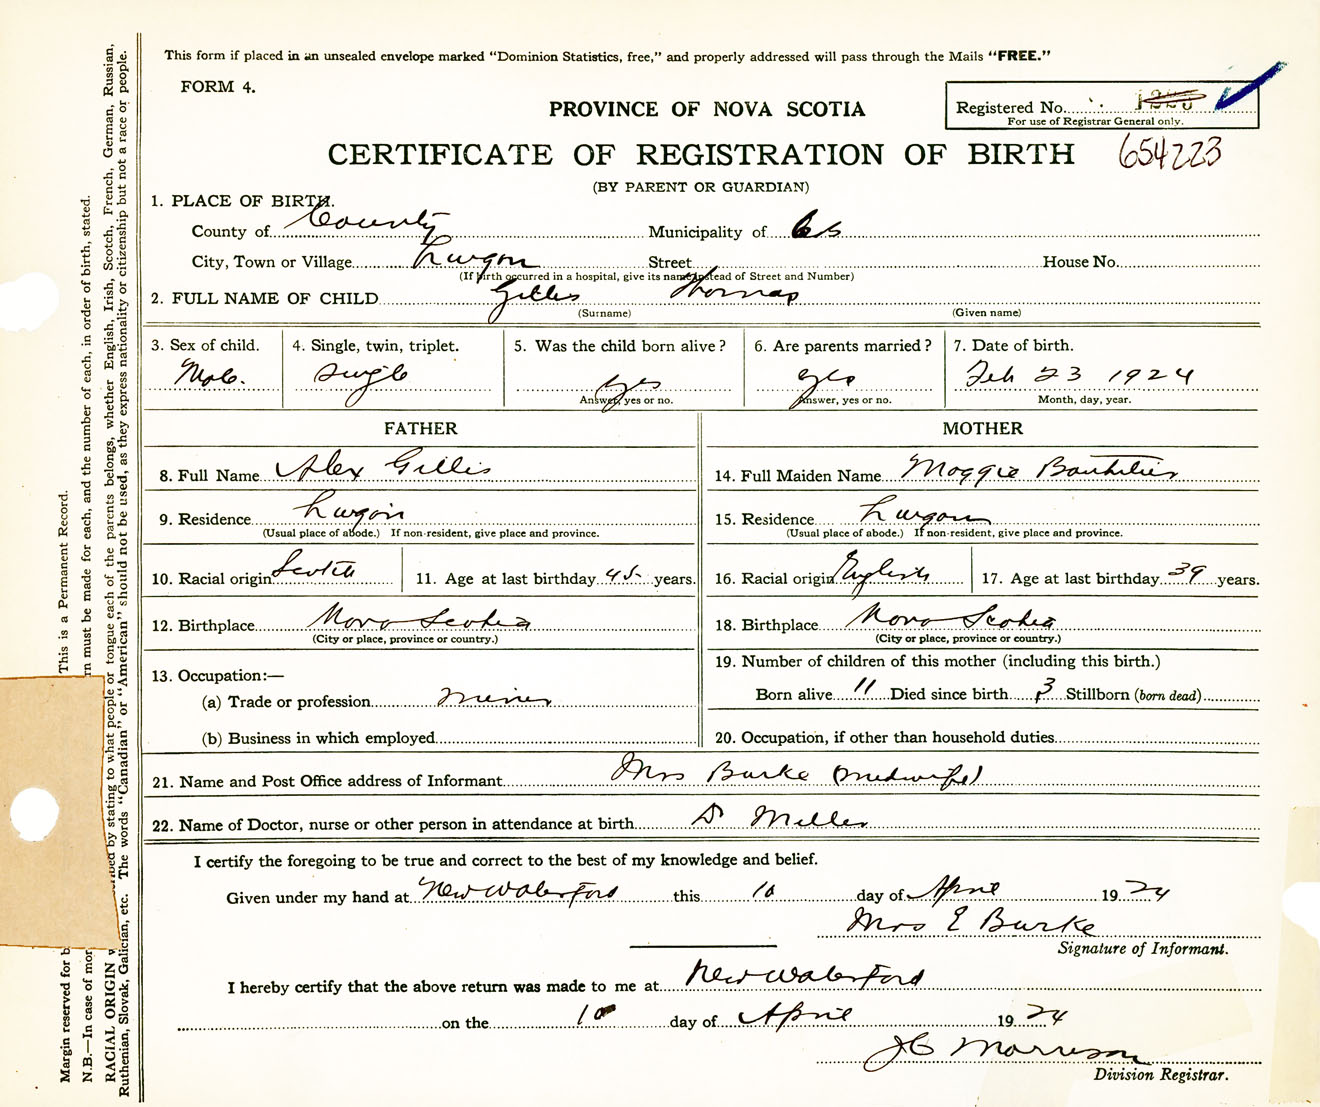 This form if placed in an unsealed envelope marked “Dominion Statistics, free,” and properly addressed will pass through the Mails “FREE.”
FORM 4.
PROVINCE OF NOVA SCOTIA
Registered No.
For use of Registrar General only.
CERTIFICATE OF REGISTRATION OF BIRTH 654223
(BY PARENT OR GUARDIAN)
1. PLACE OF BIRTH.
County of County Municipality of CB
City, Town or Village Lingan Street House No.
(If birth occurred in a hospital, give its name instead of Street and Number)
2. FULL NAME OF CHILD Gillis Thomas
(Surname) (Given name)
3. Sex of child. 4. Single, twin, triplet. 5. Was the child born alive? 6. Are parents married? 7. Date of birth.
Male. single yes yes Feb 23 1924
Answer, yes or no. Answer, yes or no. Month, day, year.
FATHER MOTHER
8. Full Name Alex Gillis 14. Full Maiden Name Maggie Boutilier
9. Residence Lingan 15. Residence Lingan
(Usual place of abode.) If non-resident, give place and province. (Usual place of abode.) If non-resident, give place and province.
10. Racial origin Scotch 11. Age at last birthday 45 years. 16. Racial origin English 17. Age at last birthday 39 years.
12. Birthplace Nova Scotia 18. Birthplace Nova Scotia
(City or place, province or country.) (City or place, province or country.)
13. Occupation:— 19. Number of children of this mother (including this birth.)
(a) Trade or profession miner Born alive 11 Died since birth 3 Stillborn (born dead)
(b) Business in which employed 20. Occupation, if other than household duties
21. Name and Post Office address of Informant Mrs Burke (midwife)
22. Name of Doctor, nurse or other person in attendance at birth Dr Miller
I certify the foregoing to be true and correct to the best of my knowledge and belief.
Given under my hand at New Waterford this 10 day of April 1924
Mrs E Burke
Signature of Informant.
I hereby certify that the above return was made to me at New Waterford
on the 10 day of April 1924
JC Morrison
Division Registrar.
Margin reserved for b This is a Permanent Record.
N.B.—In case of mor rn must be made for each, and the number of each, in order of birth, stated.
RACIAL ORIGIN by stating to what people or tongue each of the parents belongs, whether English, Irish, Scotch, French, German, Russian,
Ruthenian, Slovak, Galician, etc. The words “Canadian” or “American” should not be used, as they express nationality or citizenship but not a race or people.